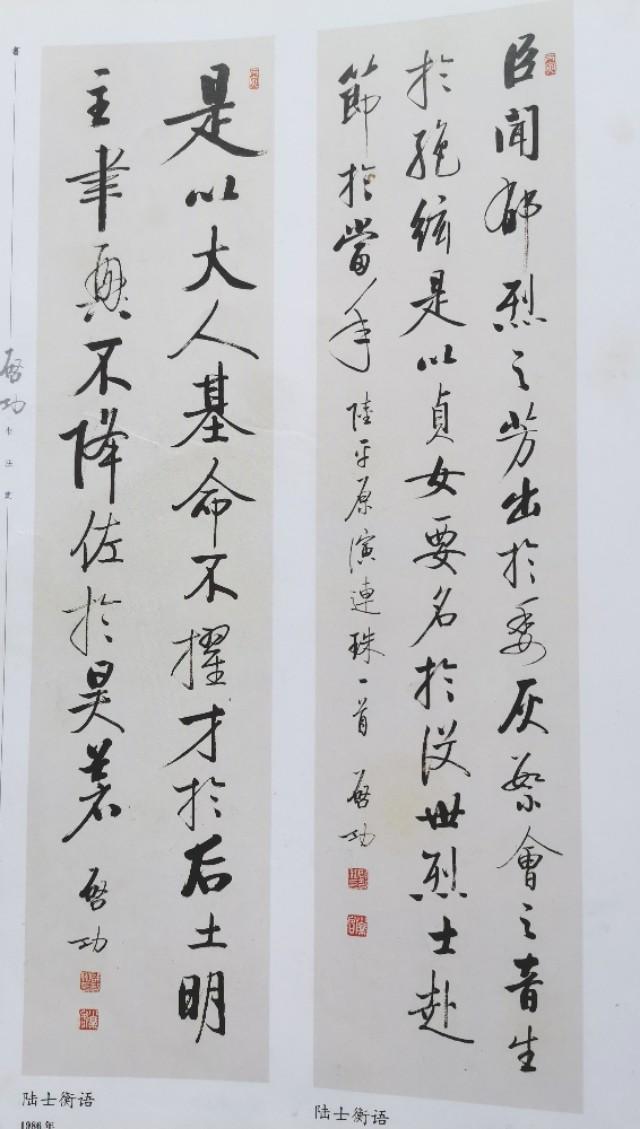 臣聞郁烈之芳出於委灰繁會之音生
於絶絃是以貞女要名於没世烈士赴
節於當年 陸平原演連珠一首 啓功
陆士衡语
是以大人基命不擢才於后土明
主聿興不降佐於昊蒼 啓功
陆士衡语
1986年
啓功